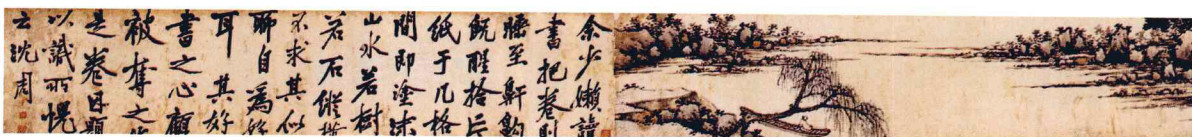 余少嬾讀
書把卷則
睡至鼾齁
既醒拾片
紙于几格
間即塗沫
山水若樹
若石縱
不求其似
聊自為
耳其好
書之心顧
被奪之
是卷因題
以識所愧
云沈周